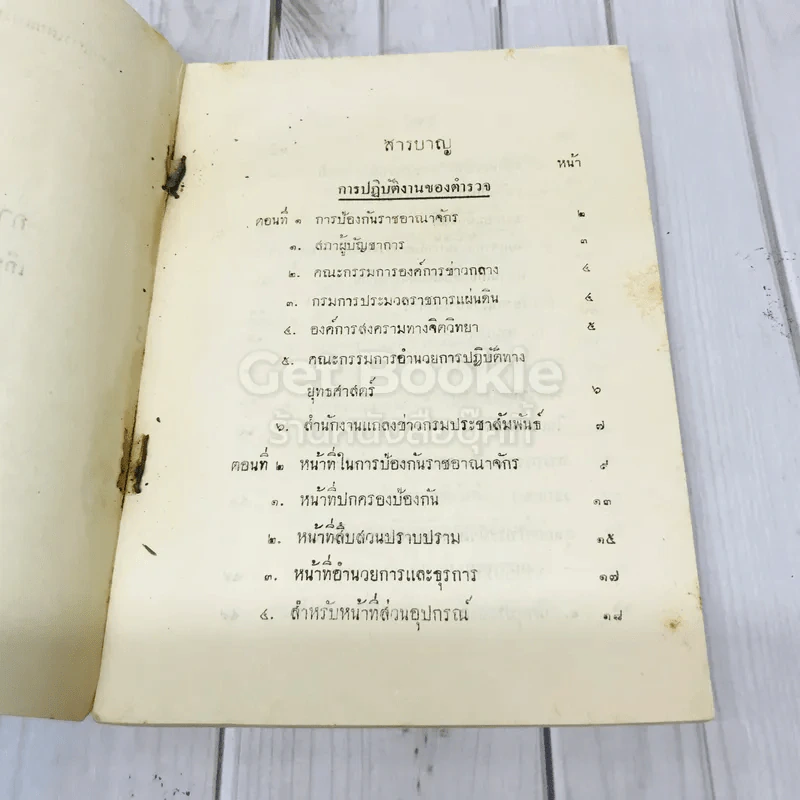 สารบาญ
หน้า
การปฏิบัติงานของตำรวจ
ตอนที่ ๑ การป้องกันราชอาณาจักร ๒
๑. สภาผู้บัญชาการ ๓
๒. คณะกรรมการองค์การข่าวกลาง ๔
๓. กรมการประมวลราชการแผ่นดิน ๔
๔. องค์การสงครามทางจิตวิทยา ๕
๕. คณะกรรมการอำนวยการปฏิบัติทาง
ยุทธศาสตร์ ๖
๖. สำนักงานแถลงข่าวกรมประชาสัมพันธ์ ๗
ตอนที่ ๒ หน้าที่ในการป้องกันราชอาณาจักร ๙
๑. หน้าที่ปกครองป้องกัน ๑๓
๒. หน้าที่สืบสวนปราบปราม ๑๕
๓. หน้าที่อำนวยการและธุรการ ๑๗
๔. สำหรับหน้าที่ส่วนอุปกรณ์ ๑๘
Get Bookie
ร้านหนังสือบุ๊คกี้